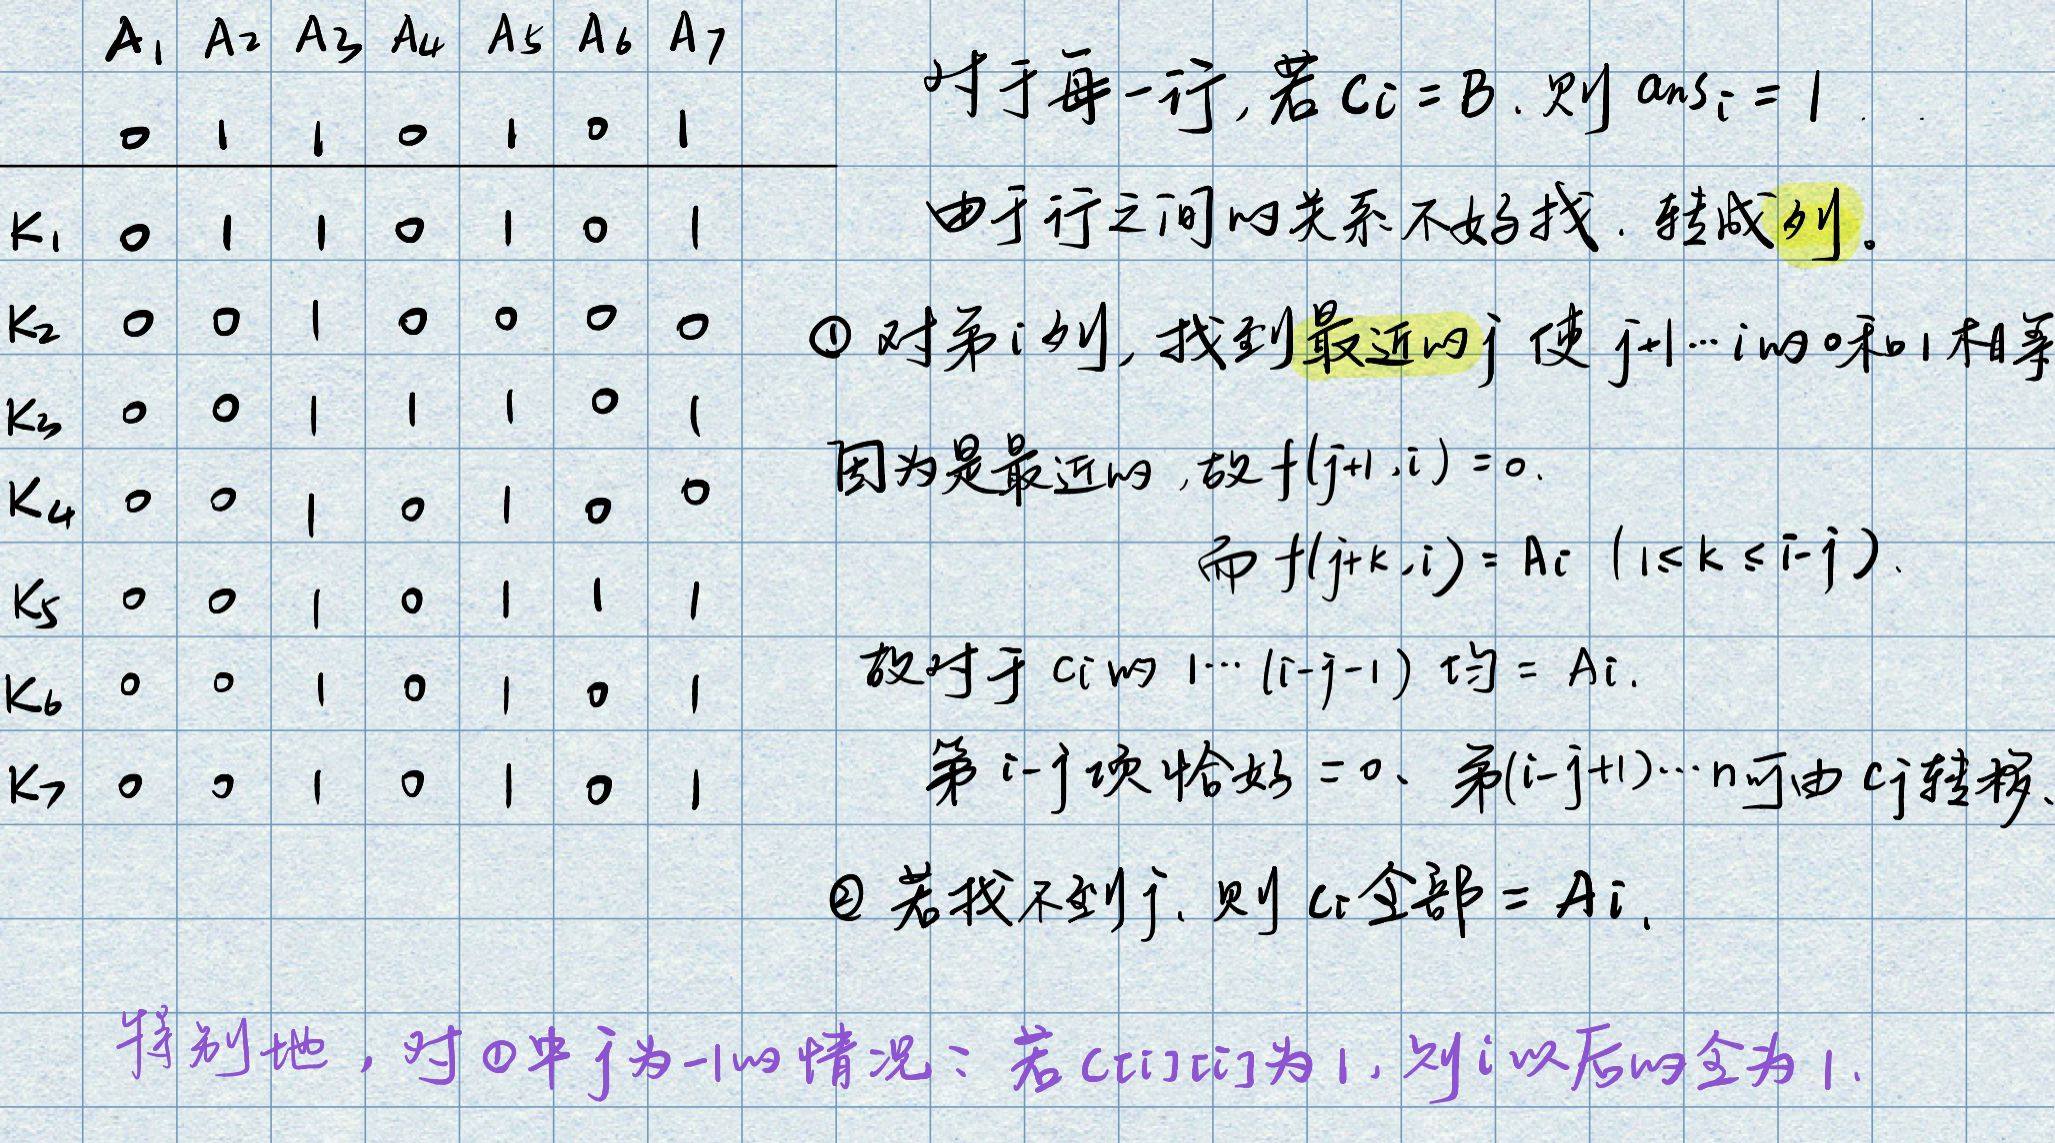 A1 A2 A3 A4 A5 A6 A7
0 1 1 0 1 0 1
K1 0 1 1 0 1 0 1
K2 0 0 1 0 0 0 0
K3 0 0 1 1 1 0 1
K4 0 0 1 0 1 0 0
K5 0 0 1 0 1 1 1
K6 0 0 1 0 1 0 1
K7 0 0 1 0 1 0 1
对于每一行,若 Ci = B. 则 ansi = 1
由于行之间的关系不好找. 转成列。
① 对第i列, 找到最近的j 使 j+1…i的0和1相等
因为是最近的,故 f(j+1,i) = 0.
而 f(j+k,i) = Ai (1≤k≤i-j).
故对于 ci的 1…(i-j-1) 均 = Ai.
第 i-j 项恰好 = 0、第(i-j+1)…n可由 cj转移、
② 若找不到j. 则 ci全部 = Ai.
特别地, 对①中j为-1的情况: 若 C[i][i]为1, 则i以后的全为1.